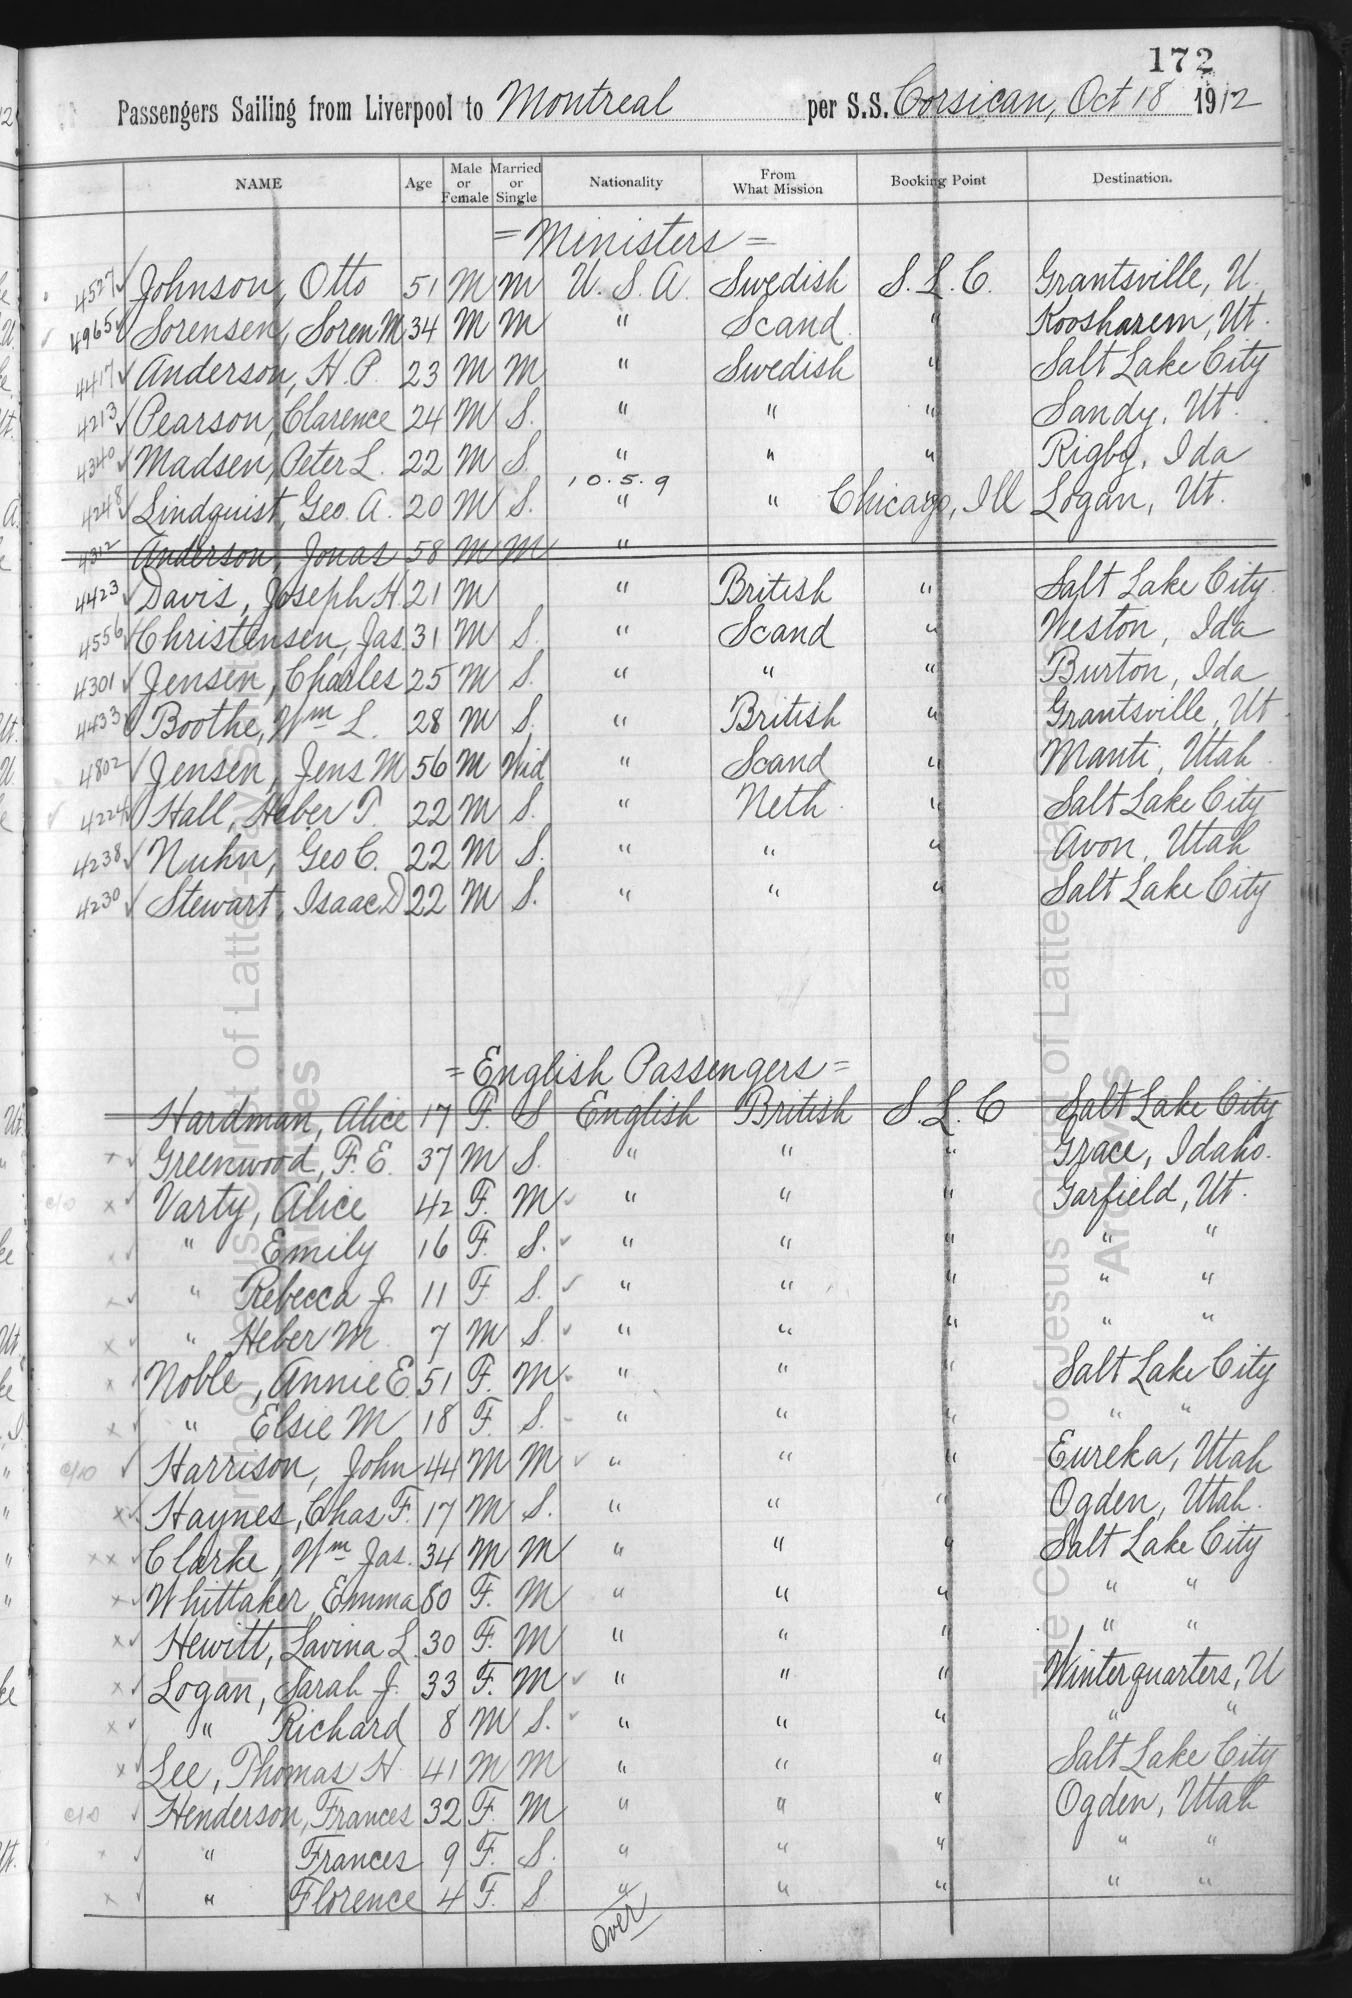 172
Passengers Sailing from Liverpool to Montreal per S.S. Corsican, Oct 18 1912
NAME Age Male or Female Married or Single Nationality From What Mission Booking Point Destination.
= Ministers =
4527 Johnson, Otto 51 M M U. S. A. Swedish S. L. C. Grantsville, U.
4965 Sorensen, Soren M 34 M M " Scand. " Koosharem, Ut.
4417 Anderson, H. P. 23 M M " Swedish " Salt Lake City
4213 Pearson, Clarence 24 M S. " " " Sandy, Ut.
4340 Madsen, Peter L. 22 M S. " " " Rigby, Ida
10.5.9
4248 Lindquist, Geo. A. 20 M S. " " Chicago, Ill Logan, Ut.
4312 Anderson, Jonas 58 M M "
4423 Davis, Joseph H. 21 M " British " Salt Lake City
4556 Christensen, Jas. 31 M S. " Scand " Weston, Ida
4301 Jensen, Charles 25 M S. " " " Burton, Ida
4433 Boothe, Wm L. 28 M S. " British " Grantsville, Ut
4802 Jensen, Jens M 56 M Wid " Scand " Manti, Utah
4224 Hall, Heber T. 22 M S. " Neth. " Salt Lake City
4238 Nuhn, Geo C. 22 M S. " " " Avon, Utah
4230 Stewart, Isaac D 22 M S. " " " Salt Lake City
= English Passengers =
Hardman, Alice 17 F. S English British S. L. C Salt Lake City
Greenwood, F. E. 37 M S. " " " Grace, Idaho.
c/o Varty, Alice 42 F. M " " " Garfield, Ut.
" Emily 16 F. S. " " " " "
" Rebecca J. 11 F S. " " " " "
" Heber M 7 M S. " " " " "
Noble, Annie E. 51 F. M " " " Salt Lake City
" Elsie M 18 F. S. " " " " "
c/o Harrison, John 44 M M " " " Eureka, Utah
Haynes, Chas F. 17 M S. " " " Ogden, Utah.
Clarke, Wm Jas. 34 M M " " " Salt Lake City
Whittaker, Emma 80 F. M " " " " "
Hewitt, Lavina L. 30 F. M " " " " "
Logan, Sarah J. 33 F. M " " " Winterquarters, U
" Richard 8 M S. " " " " "
Lee, Thomas H 41 M M " " " Salt Lake City
c/o Henderson, Frances 32 F. M " " " Ogden, Utah
" Frances 9 F. S. " " " " "
" Florence 4 F. S " " " " "
Over